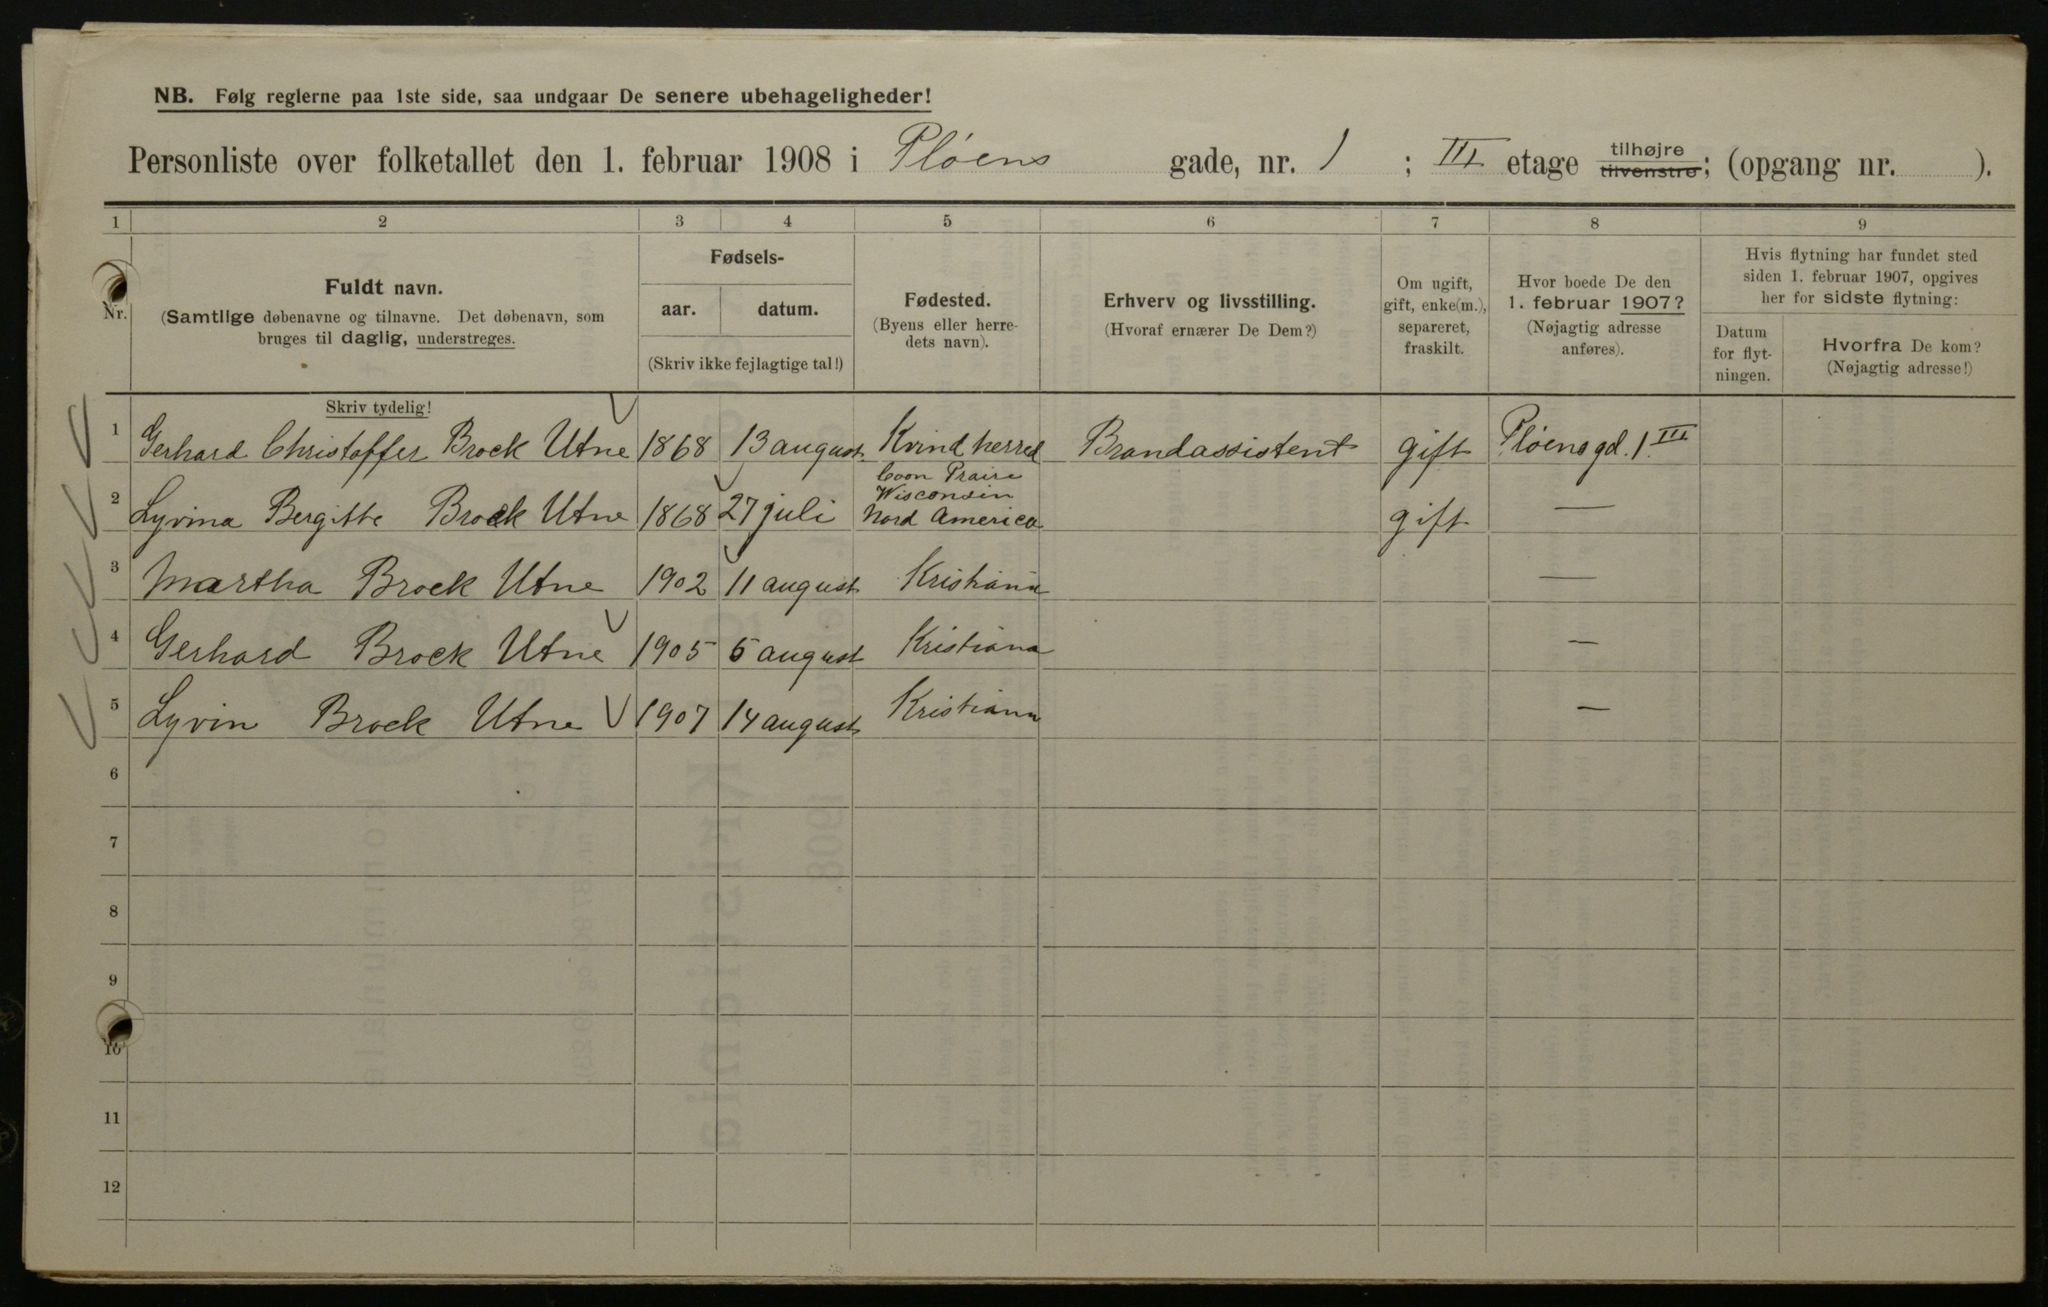 NB. Følg reglerne paa 1ste side, saa undgaar De senere ubehageligheder!
Personliste over folketallet den 1. februar 1908 i Pløens gade, nr. 1 ; III etage tilhøjre tilvenstre; (opgang nr. ).
1 2 3 4 5 6 7 8 9
Nr.
Fuldt navn.
(Samtlige døbenavne og tilnavne. Det døbenavn, som
bruges til daglig, understreges.
Fødsels-
aar. datum.
(Skriv ikke fejlagtige tal!)
Fødested.
(Byens eller herre-
dets navn).
Erhverv og livsstilling.
(Hvoraf ernærer De Dem?)
Om ugift,
gift, enke(m.),
separeret,
fraskilt.
Hvor boede De den
1. februar 1907?
(Nøjagtig adresse
anføres).
Hvis flytning har fundet sted
siden 1. februar 1907, opgives
her for sidste flytning:
Datum
for flyt-
ningen.
Hvorfra De kom?
(Nøjagtig adresse!)
Skriv tydelig!
1 Gerhard Christoffer Brock Utne 1868 13 august Kvindherred Brandassistent gift Pløensgd. 1 III
2 Lyvina Bergitte Brock Utne 1868 27 juli Coon Praire
Wisconsin
Nord America gift —
3 Martha Brock Utne 1902 11 august Kristiania —
4 Gerhard Brock Utne 1905 5 august Kristiana —
5 Lyvin Brock Utne 1907 14 august Kristiana —
6
7
8
9
10
11
12